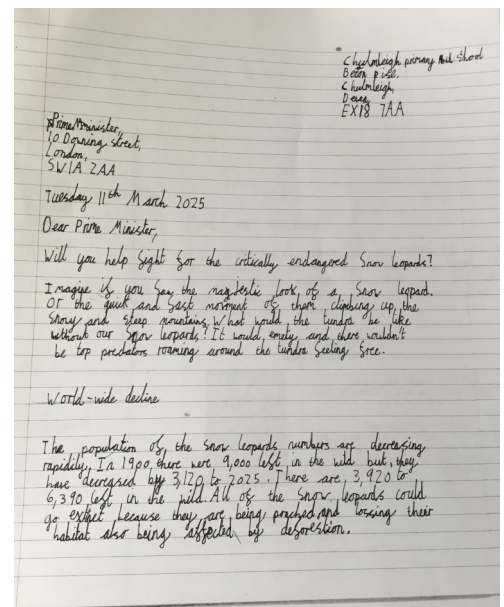 Chulmleigh primary School
Beacon rise,
Chulmleigh,
Devon,
EX18 7AA
Prime Minister,
10 Downing street,
London,
SW1A 2AA
Tuesday 11th March 2025
Dear Prime Minister,
Will you help fight for the critically endangered Snow leopards?
Imagine if you saw the majestic look of a Snow leopard.
Or the quiet and fast moment of them climbing up the
Snowy and steep mountains. What would the tundra be like
without our Snow leopards? It would emety and there wouldn't
be top predators roaming around the tundra feeling free.
World-wide decline
The population of the Snow leopards numbers are decreasing
rapidily. In 1900, there were 9,000 left in the wild but, they
have decreased by 3,120 to 2025. There are 3,920 to
6,390 left in the wild. All of the Snow leopards could
go extinct because they are being proched and lossing their
habitat also being affected by deforestion.